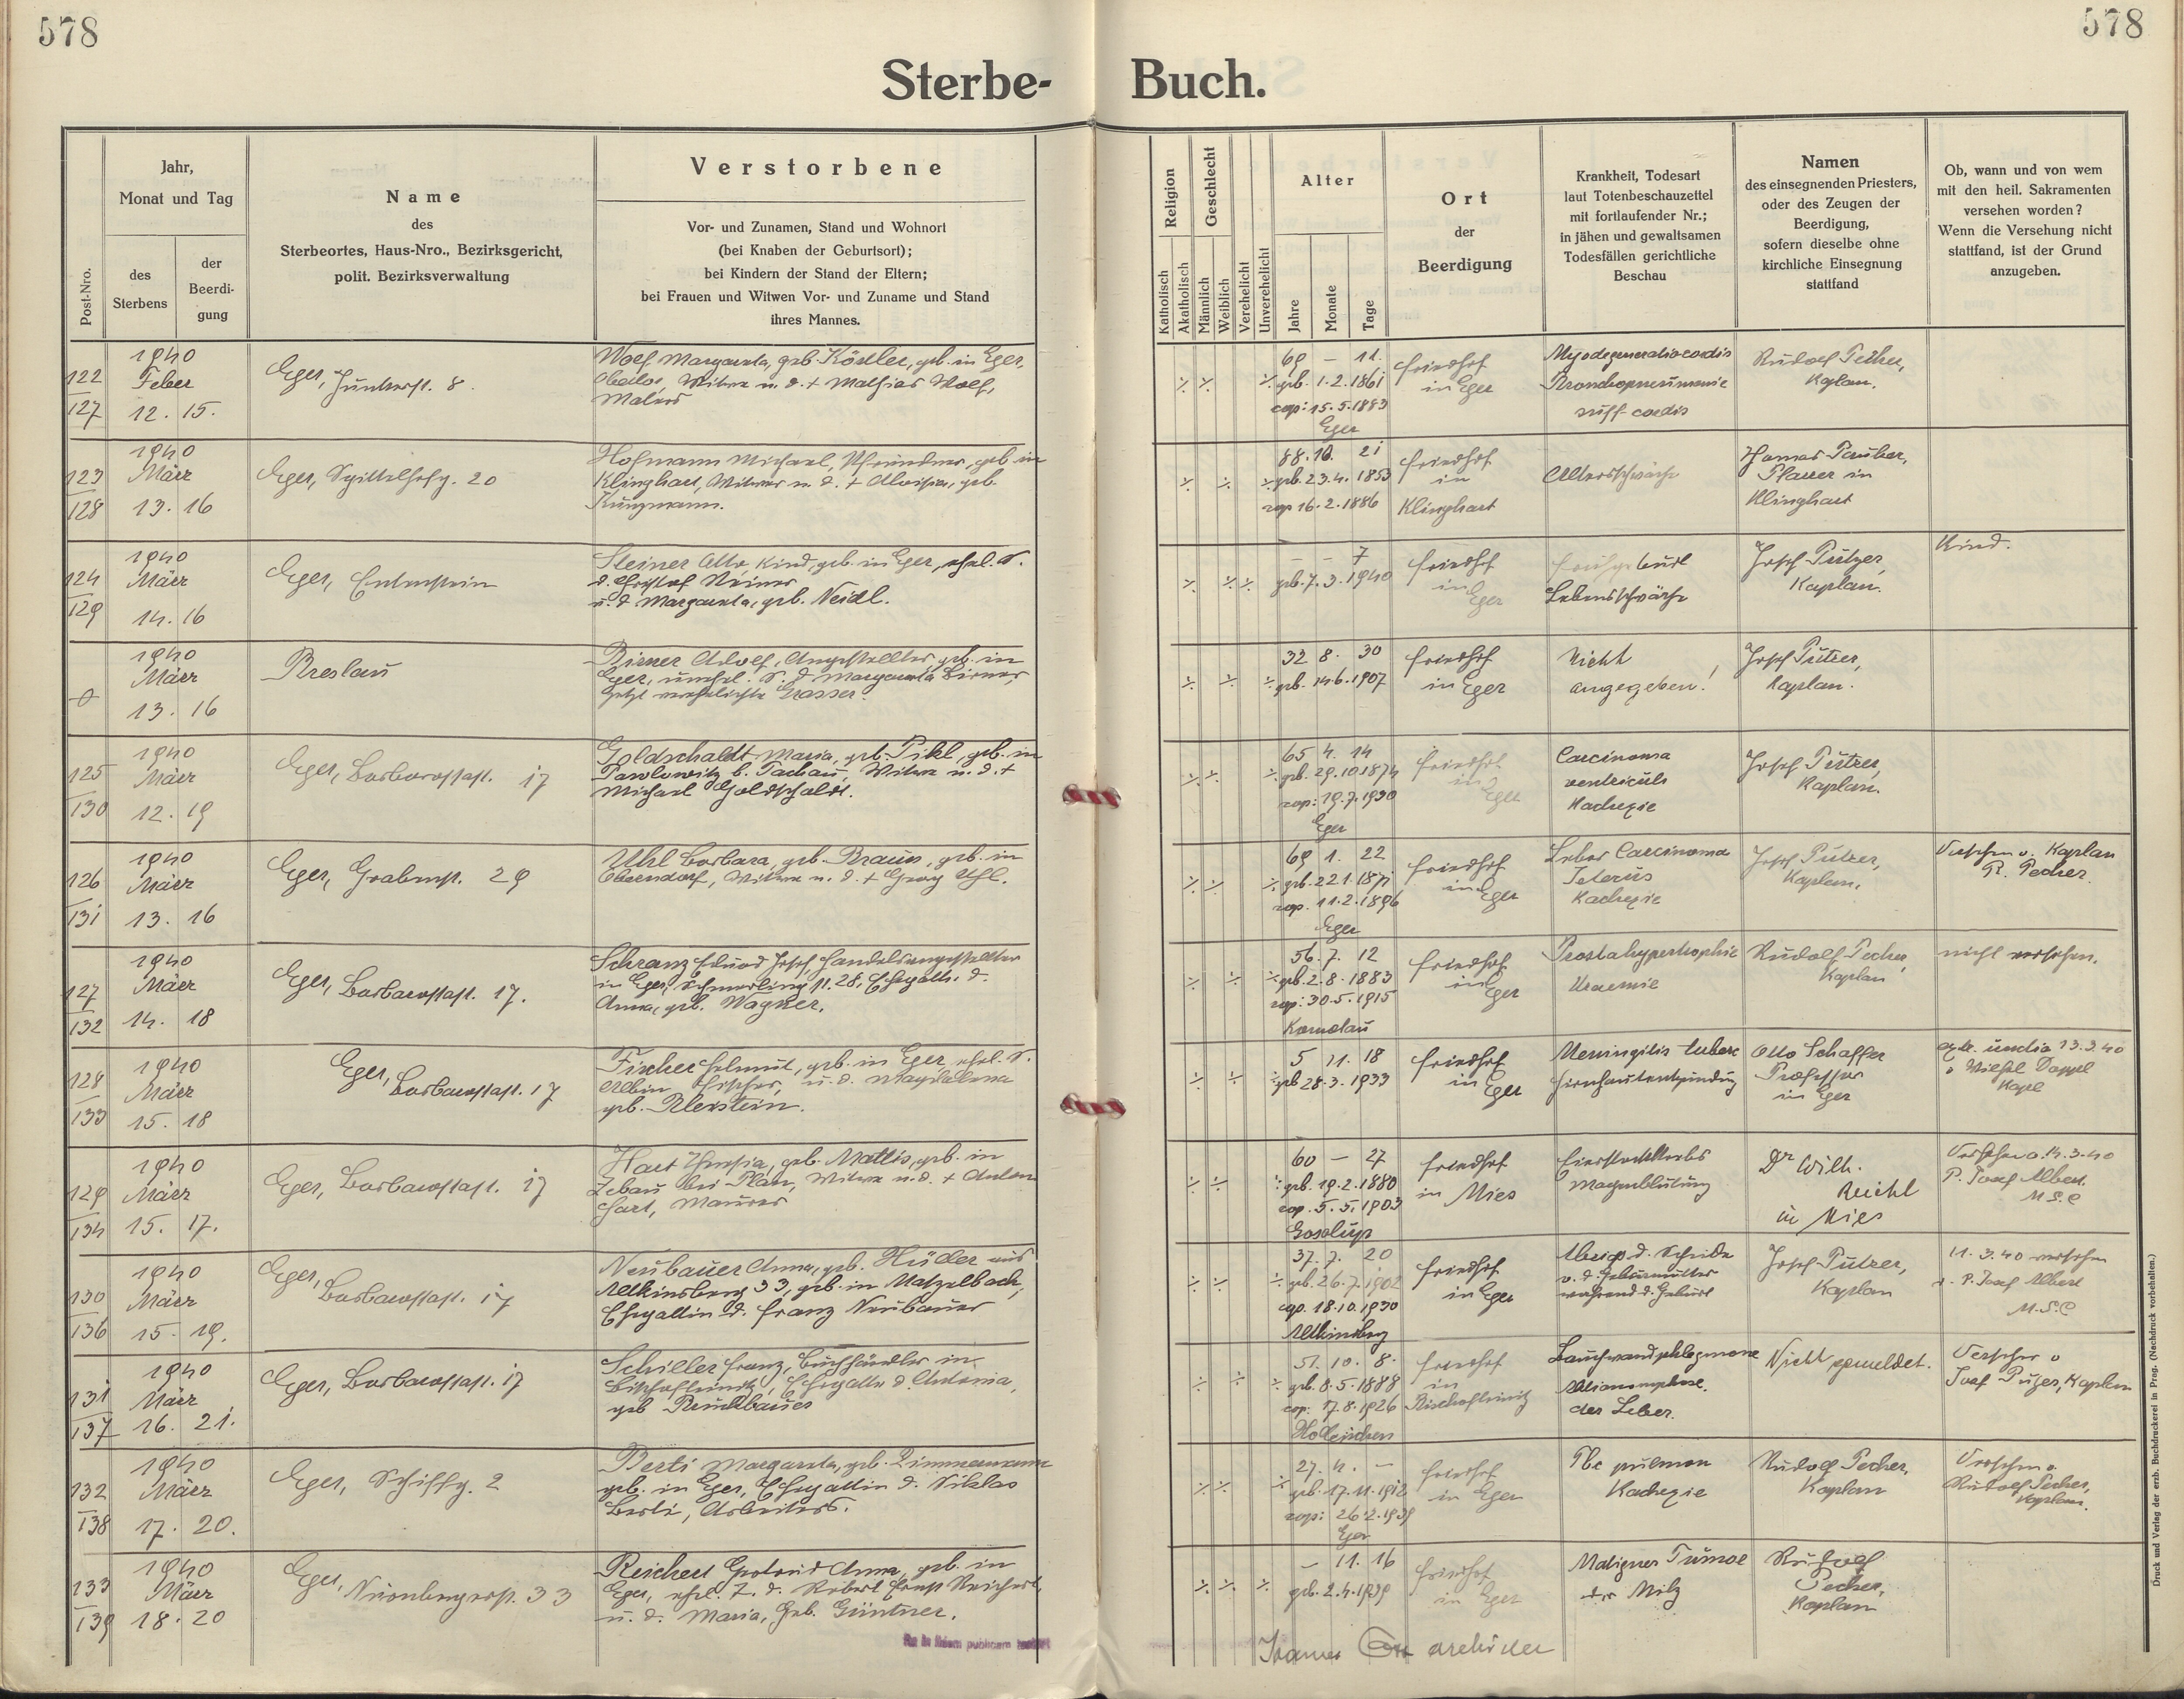 578
578
Sterbe- Buch.
Post-Nro.
Jahr,
Monat und Tag
des
Sterbens
der
Beerdi-
gung
Name
des
Sterbeortes, Haus-Nro., Bezirksgericht,
polit. Bezirksverwaltung
Verstorbene
Vor- und Zunamen, Stand und Wohnort
(bei Knaben der Geburtsort);
bei Kindern der Stand der Eltern;
bei Frauen und Witwen Vor- und Zuname und Stand
ihres Mannes.
Religion
Katholisch
Akatholisch
Geschlecht
Männlich
Weiblich
Verehelicht
Unverehelicht
Alter
Jahre
Monate
Tage
Ort
der
Beerdigung
Krankheit, Todesart
laut Totenbeschauzettel
mit fortlaufender Nr.;
in jähen und gewaltsamen
Todesfällen gerichtliche
Beschau
Namen
des einsegnenden Priesters,
oder des Zeugen der
Beerdigung,
sofern dieselbe ohne
kirchliche Einsegnung
stattfand
Ob, wann und von wem
mit den heil. Sakramenten
versehen worden?
Wenn die Versehung nicht
stattfand, ist der Grund
anzugeben.
122
127
1940
Feber
12. 15.
Eger, Junkerst. 8.
Wolf Margareta, geb. Köstler, geb. in Eger,
Witwe n. d. + Mathias Wolf,
Malers
69 – 11.
geb. 1.2.1861
cop: 15.5.1883
Eger
Friedhof
in Eger
Myodegeneratio cordis
Bronchopneumonie
suff cordis
Rudolf Pecher,
Kaplan.
123
128
1940
März
13. 16
Eger, 20
Hofmann Michael, Pfründner, geb. in
Klinghart, Witwer n. d. + Aloisia, geb.
Kunzmann.
88. 10. 21
geb. 23.4.1853
cop 16.2.1886
Friedhof
in
Klinghart
Altersschwäche
Pfarrer in
Klinghart
124
129
1940
März
14. 16
Eger,
Steiner Otto, Kind, geb. in Eger, ehel. S.
d. Christof Steiner
u. d. Margareta, geb. Neidl.
– – 7
geb. 7.3.1940
Friedhof
in Eger
Frühgeburt
Lebensschwäche
Josef Pützer,
Kaplan.
Kind.
1940
März
13. 16
Breslau
Birner Adolf, Angestellter, geb. in
Eger, unehel. S. d. Margareta Birner,
jetzt verehelichte Grasser.
32 8. 30
geb. 14.6.1907
Friedhof
in Eger
Nicht
angegeben!
Josef Pützer,
Kaplan.
125
130
1940
März
12. 19
Eger, Barbarossast. 17
Goldschaldt Maria, geb. Pikl, geb. in
Pawlowitz b. Tachau, Witwe n. d. +
Michael Goldschaldt.
65 4. 14
geb. 29.10.1874
cop: 19.7.1930
Eger
Friedhof
in Eger
Carcinoma
ventriculi
Kachexie
Josef Pützer,
Kaplan.
126
131
1940
März
13. 16
Eger, Grabenst. 29
Uhl Barbara, geb. Braun, geb. in
Oberndorf, Witwe n. d. + Georg Uhl.
69 1. 22
geb. 22.1.1871
cop. 11.2.1896
Eger
Friedhof
in Eger
Leber Carcinoma
Icterus
Kachexie
Josef Pützer,
Kaplan.
Versehen v. Kaplan
R. Pecher.
127
132
1940
März
14. 18
Eger, Barbarossast. 17.
Schranz Eduard Josef, Handelsangestellter
in Eger, Schmerling st. 28, Ehegatte d.
Anna, geb. Wagner.
56. 7. 12
geb. 2.8.1883
cop: 30.5.1915
Komotau
Friedhof
in Eger
Prostahypertrophie
Uraemie
Rudolf Pecher,
Kaplan
nicht versehen.
128
133
1940
März
15. 18
Eger,
Barbarossast. 17
Fischer Helmut, geb. in Eger, ehel. S.
Albin Fischer, u. d. Magdalena
geb. Bleistein.
5 11. 18
geb 28.3.1933
Friedhof
in Eger
Meningitis tuberc
Hirnhautentzündung
Otto Schaffer
Professor
in Eger
extr. unctio 13.3.40
129
134
1940
März
15. 17.
Eger, Barbarossast. 17
Hart Theresia, geb. Mattis, geb. in
Zebau bei Plan, Witwe n. d. + Anton
Hart, Maurer
60 – 27
geb. 19.2.1880
cop. 5.5.1903
Friedhof
in Mies
Eierstockkrebs
Magenblutung
Dr Wilh.
Reichl
in Mies
P. Josef Albert
M.S.C
130
136
1940
März
15. 19.
Eger,
Barbarossast. 17
Neubauer Anna, geb. Hüller aus
Altkinsberg 33, geb. in Matzelbach,
Ehegattin d. Franz Neubauer
37. 7. 20
geb. 26.7.1902
cop. 18.10.1930
Altkinsberg
Friedhof
in Eger
Abriss d. Scheide
v. d. Gebärmutter
während d. Geburt
Josef Pützer,
Kaplan
11.3.40 versehen
v. P. Josef Albert
M.S.C
131
137
1940
März
16. 21.
Eger, Barbarossast. 17
Schiller Franz, Buchhändler in
Bischofteinitz, Ehegatte d. Antonia,
geb
51. 10. 8.
geb. 8.5.1888
cop: 17.8.1926
Holleischen
Friedhof
in
Bischofteinitz
Bauchwandphlegmone
der Leber.
Nicht gemeldet.
Versehen v
Josef Pützer, Kaplan
132
138
1940
März
17. 20.
Eger, Schiffg. 2
Berti Margareta, geb. Zimmermann
geb. in Eger, Ehegattin d. Niklas
Berti, Arbeiters.
27. 4. –
geb. 17.11.1912
cop: 26.2.1939
Eger
Friedhof
in Eger
Tbc pulmon
Kachexie
Rudolf Pecher,
Kaplan
Versehen v.
Rudolf Pecher,
Kaplan.
133
139
1940
März
18. 20
Eger,
Nürnbergerst. 33
Reichert Gertrud Anna, geb. in
Eger, ehel. T. d. Robert Ernst Reichert,
u. d. Maria, geb. Güntner.
– 11. 16
geb. 2.4.1939
Friedhof
in Eger
Maligner Tumor
der Milz
Rudolf
Pecher,
Kaplan
publicam
Druck und Verlag der erzb. Buchdruckerei in Prag. (Nachdruck vorbehalten.)